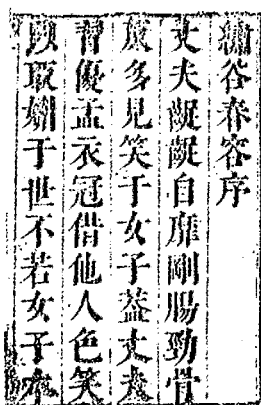 繡谷春容序
丈夫齪齪自靡剛腸勁骨
多見笑于女子蓋丈夫
習優孟衣冠借他人色笑
取媚于世不若女子本